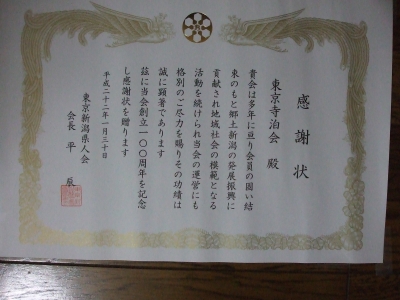 感謝状
東京寺泊会 殿
貴会は多年に亘り会員の固い結
束のもと郷土新潟の発展振興に
貢献され地域社会の模範となる
活動を続けられ当会の運営にも
格別のご尽力を賜りその功績は
誠に顕著であります
茲に当会創立一〇〇周年を記念
し感謝状を贈ります
平成二十二年一月三十日
東京新潟県人会
会長 平 辰